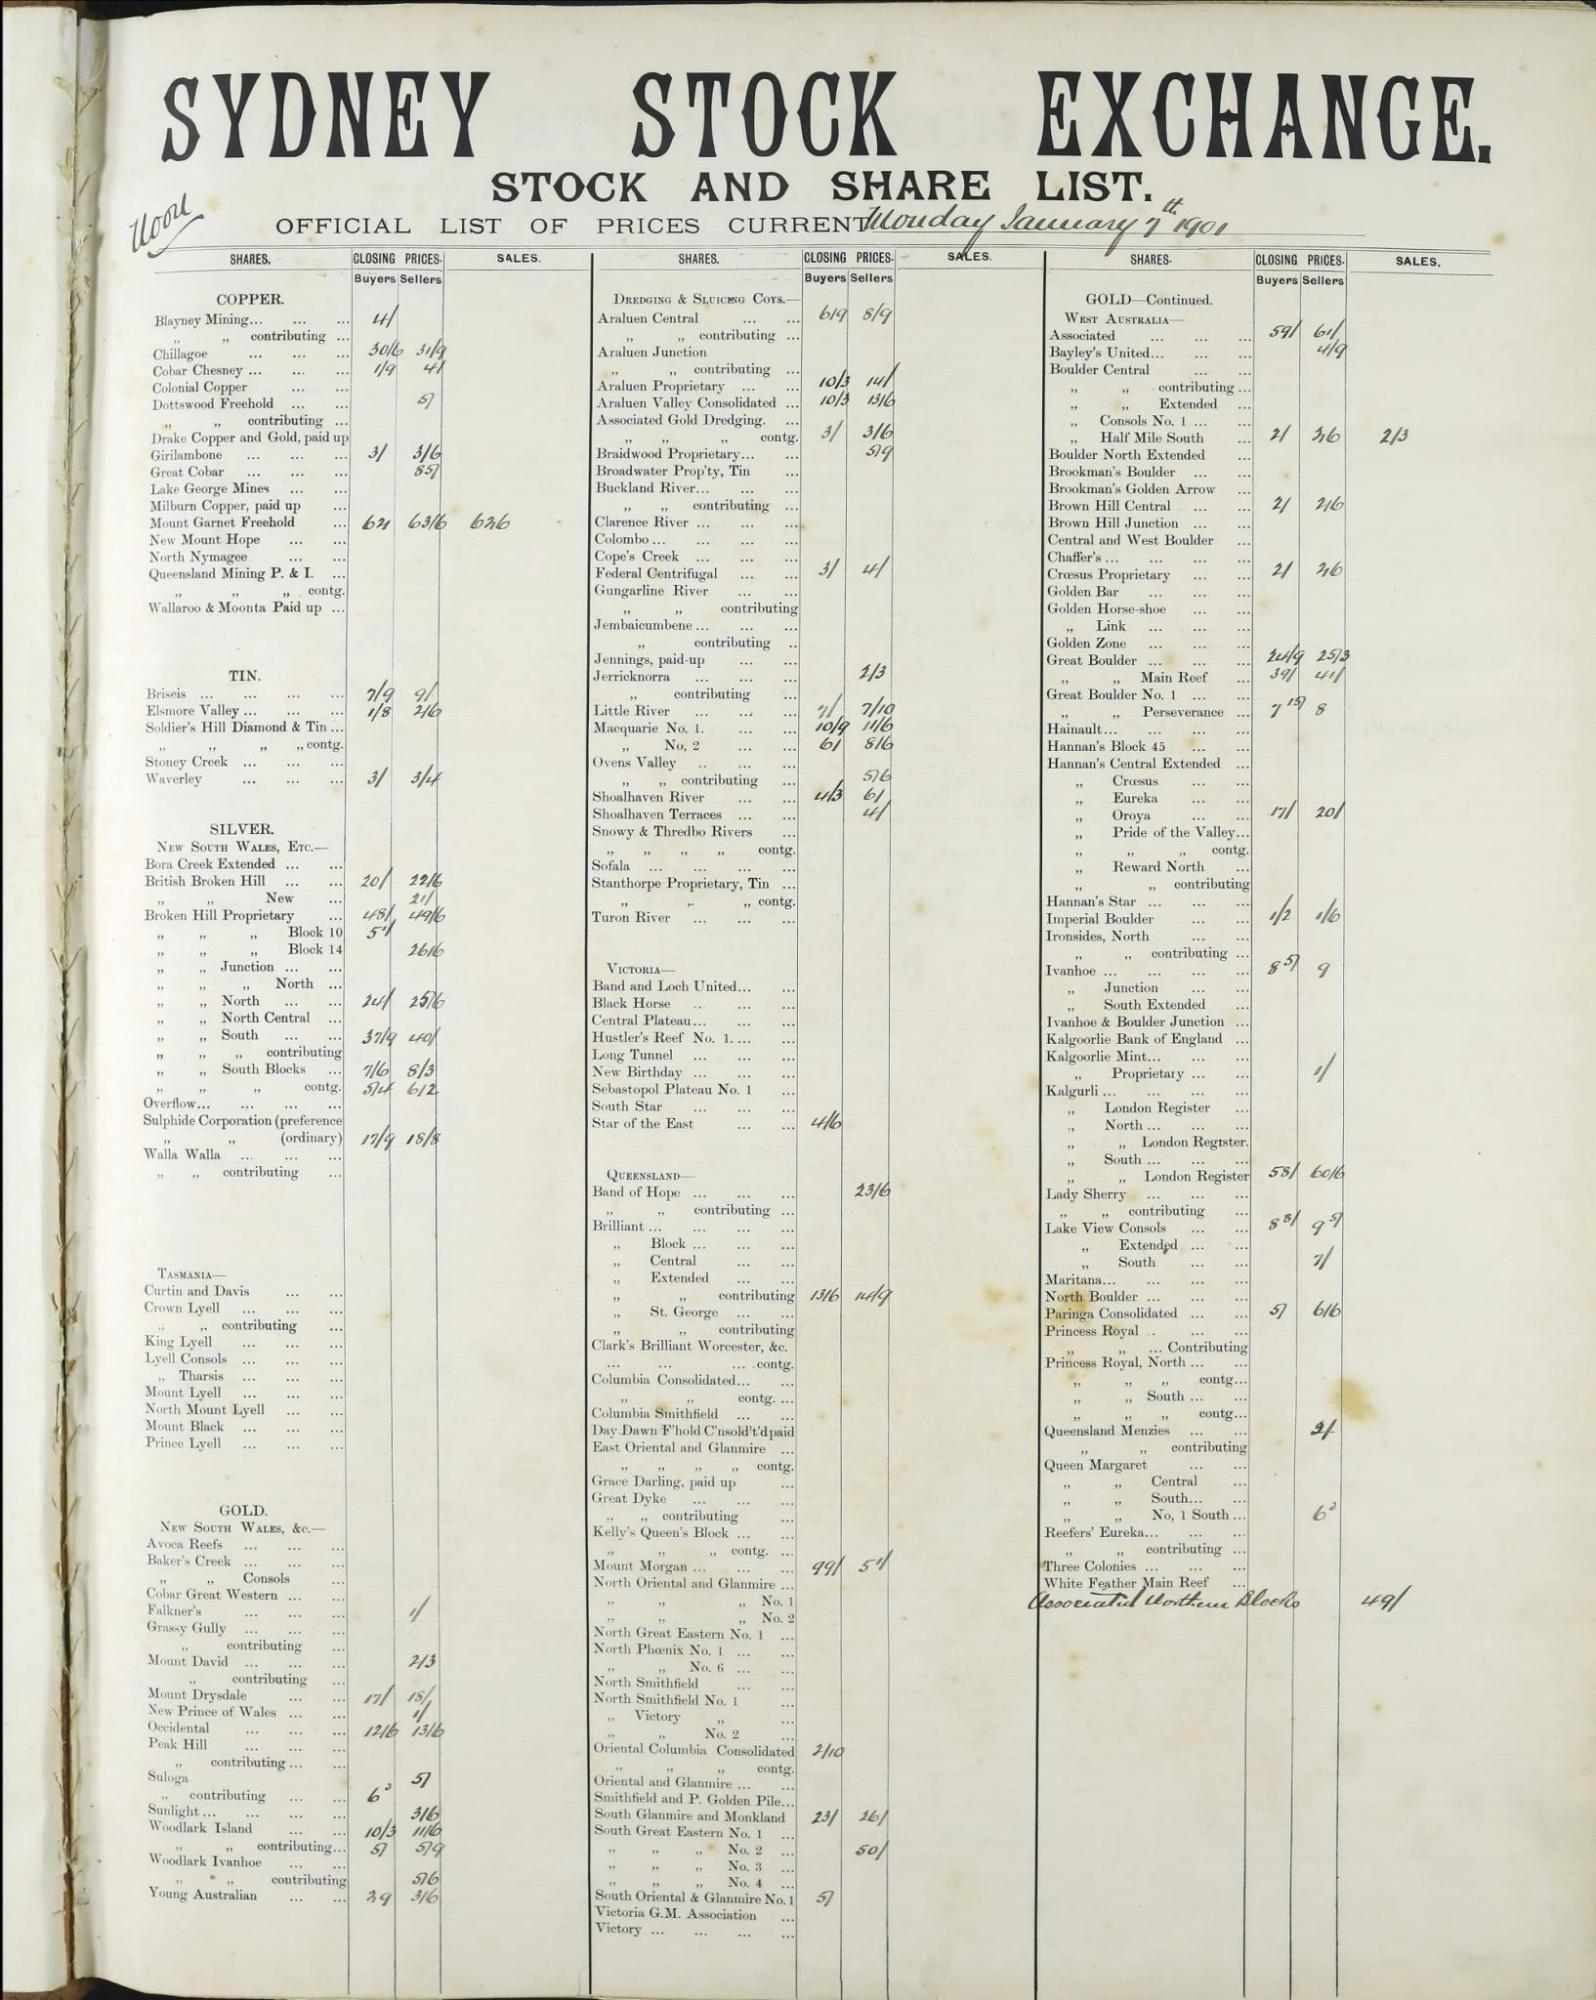 SYDNEY STOCK EXCHANGE.
STOCK AND SHARE LIST.
Noon
OFFICIAL LIST OF PRICES CURRENT Monday January 7th 1901
SHARES. CLOSING PRICES. SALES.
Buyers Sellers
COPPER.
Blayney Mining... ... ... 4/
„ „ contributing ...
Chillagoe ... ... ... 30/6 31/9
Cobar Chesney ... ... ... 1/9 4/
Colonial Copper ... ...
Dottswood Freehold ... ... 5/
„ „ contributing ...
Drake Copper and Gold, paid up
Girilambone ... ... ... 3/ 3/6
Great Cobar ... ... ... 85/
Lake George Mines ... ...
Milburn Copper, paid up ...
Mount Garnet Freehold ... 62/ 63/6 62/6
New Mount Hope ... ...
North Nymagee ... ...
Queensland Mining P. & I. ...
„ „ „ contg.
Wallaroo & Moonta Paid up ...
TIN.
Briseis ... ... ... ... 7/9 9/
Elsmore Valley ... ... ... 1/8 2/6
Soldier's Hill Diamond & Tin ...
„ „ „ „ contg.
Stoney Creek ... ... ...
Waverley ... ... ... 3/ 3/4
SILVER.
NEW SOUTH WALES, ETC.—
Bora Creek Extended ... ...
British Broken Hill ... ... 20/ 22/6
„ „ New ... 21/
Broken Hill Proprietary ... 48/ 49/6
„ „ „ Block 10 51/
„ „ „ Block 14 26/6
„ „ Junction ... ...
„ „ „ North ...
„ „ North ... ... 24/ 25/6
„ „ North Central ...
„ „ South ... ... 37/9 40/
„ „ „ contributing
„ „ South Blocks ... 7/6 8/3
„ „ „ contg. 5/4 6/2
Overflow... ... ... ...
Sulphide Corporation (preference
„ „ (ordinary) 17/9 18/8
Walla Walla ... ... ...
„ „ contributing ...
TASMANIA—
Curtin and Davis ... ...
Crown Lyell ... ... ...
„ „ contributing ...
King Lyell ... ... ...
Lyell Consols ... ... ...
„ Tharsis ... ... ...
Mount Lyell ... ... ...
North Mount Lyell ... ...
Mount Black ... ... ...
Prince Lyell ... ... ...
GOLD.
NEW SOUTH WALES, &c.—
Avoca Reefs ... ... ...
Baker's Creek ... ... ...
„ „ Consols ...
Cobar Great Western ... ...
Falkner's ... ... ... 1/
Grassy Gully ... ... ...
„ contributing ...
Mount David ... ... ... 2/3
„ contributing ...
Mount Drysdale ... ... 17/ 18/
New Prince of Wales ... ... 1/
Occidental ... ... ... 12/6 13/6
Peak Hill ... ... ...
„ contributing ... ...
Suloga 5/
„ contributing ... ... 6d
Sunlight ... ... ... ... 3/6
Woodlark Island ... ... 10/3 11/6
„ „ contributing... 5/ 5/9
Woodlark Ivanhoe ... ...
„ „ contributing 5/6
Young Australian ... ... 2/9 3/6
SHARES. CLOSING PRICES. SALES.
Buyers Sellers
DREDGING & SLUICING COYS.—
Araluen Central ... ... 6/9 8/9
„ „ contributing ...
Araluen Junction
„ „ contributing ...
Araluen Proprietary ... ... 10/3 14/
Araluen Valley Consolidated ... 10/3 13/6
Associated Gold Dredging. ...
„ „ „ contg. 3/ 3/6
Braidwood Proprietary... ... 5/9
Broadwater Prop'ty, Tin ...
Buckland River... ... ...
„ „ contributing ...
Clarence River ... ... ...
Colombo ... ... ... ...
Cope's Creek ... ... ...
Federal Centrifugal ... ... 3/ 4/
Gungarline River ... ...
„ „ contributing
Jembaicumbene ... ... ...
„ contributing ..
Jennings, paid-up ... ...
Jerricknorra ... ... ... 2/3
„ contributing ...
Little River ... ... ... 7/ 7/10
Macquarie No. 1. ... ... 10/9 11/6
„ No, 2 ... ... 6/ 8/6
Ovens Valley .. ... ...
„ „ contributing ... 5/6
Shoalhaven River ... ... 4/3 6/
Shoalhaven Terraces ... ... 4/
Snowy & Thredbo Rivers ...
„ „ „ „ contg.
Sofala ... ... ... ...
Stanthorpe Proprietary, Tin ...
„ „ „ contg.
Turon River ... ... ...
VICTORIA—
Band and Loch United... ...
Black Horse ... ... ...
Central Plateau... ... ...
Hustler's Reef No. 1. ... ...
Long Tunnel ... ... ...
New Birthday ... ... ...
Sebastopol Plateau No. 1 ...
South Star ... ... ...
Star of the East ... ... 4/6
QUEENSLAND—
Band of Hope ... ... ... 23/6
„ „ contributing ...
Brilliant ... ... ... ...
„ Block ... ... ...
„ Central ... ...
„ Extended ... ...
„ „ contributing 13/6 14/9
„ St. George ... ...
„ „ contributing
Clark's Brilliant Worcester, &c.
... ... ... contg.
Columbia Consolidated... ...
„ „ contg. ...
Columbia Smithfield ... ...
Day Dawn F'hold C'nsold't'd paid
East Oriental and Glanmire ...
„ „ „ „ contg.
Grace Darling, paid up ...
Great Dyke ... ... ...
„ „ contributing ...
Kelly's Queen's Block ... ...
„ „ „ contg. ...
Mount Morgan ... ... ... 99/ 51/
North Oriental and Glanmire ...
„ „ „ No. 1
„ „ „ No. 2
North Great Eastern No. 1 ...
North Phœnix No. 1 ... ...
„ „ No. 6 ... ...
North Smithfield ... ...
North Smithfield No. 1 ...
„ Victory „ ...
„ „ No. 2 ...
Oriental Columbia Consolidated 2/10
„ „ „ contg.
Oriental and Glanmire ... ...
Smithfield and P. Golden Pile...
South Glanmire and Monkland 23/ 26/
South Great Eastern No. 1 ...
„ „ „ No. 2 ... 50/
„ „ „ No. 3 ...
„ „ „ No. 4 ...
South Oriental & Glanmire No. 1 5/
Victoria G.M. Association ...
Victory ... ... ... ...
SHARES. CLOSING PRICES. SALES.
Buyers Sellers
GOLD—Continued.
WEST AUSTRALIA—
Associated ... ... ... 59/ 61/
Bayley's United... ... ... 4/9
Boulder Central ... ...
„ „ contributing ...
„ „ Extended ...
„ Consols No. 1 ... ...
„ Half Mile South ... 2/ 3/6 2/3
Boulder North Extended ...
Brookman's Boulder ... ...
Brookman's Golden Arrow ...
Brown Hill Central ... ... 2/ 2/6
Brown Hill Junction ... ...
Central and West Boulder ...
Chaffer's ... ... ... ...
Crœsus Proprietary ... ... 2/ 2/6
Golden Bar ... ... ...
Golden Horse-shoe ... ...
„ Link ... ... ...
Golden Zone ... ... ...
Great Boulder ... ... ... 24/9 25/3
„ „ Main Reef ... 39/ 41/
Great Boulder No. 1 ... ...
„ „ Perseverance ... 7 15/ 8
Hainault... ... ... ...
Hannan's Block 45 ... ...
Hannan's Central Extended ...
„ Crœsus ... ...
„ Eureka ... ...
„ Oroya ... ... 17/ 20/
„ Pride of the Valley...
„ „ „ contg.
„ Reward North ...
„ „ contributing
Hannan's Star ... ... ...
Imperial Boulder ... ... 1/2 1/6
Ironsides, North ... ...
„ contributing ...
Ivanhoe ... ... ... ... 8 5/ 9
„ Junction ... ...
„ South Extended ...
Ivanhoe & Boulder Junction ...
Kalgoorlie Bank of England ...
Kalgoorlie Mint... ... ...
„ Proprietary ... ... 1/
Kalgurli ... ... ... ...
„ London Register ...
„ North ... ... ...
„ „ London Register.
„ South ... ... ...
„ „ London Register 58/ 60/6
Lady Sherry ... ... ...
„ „ contributing ...
Lake View Consols ... ... 8 8/ 9 5/
„ Extended ... ...
„ South ... ... 7/
Maritana... ... ... ...
North Boulder ... ... ...
Paringa Consolidated ... ... 5/ 6/6
Princess Royal .. ... ...
„ „ ... Contributing
Princess Royal, North ... ...
„ „ „ contg...
„ „ South ... ...
„ „ „ contg...
Queensland Menzies ... ... 2/
„ „ contributing
Queen Margaret ... ...
„ „ Central ...
„ „ South... ...
„ „ No, 1 South ... 6d
Reefers' Eureka... ... ...
„ „ contributing ...
Three Colonies ... ... ...
White Feather Main Reef ...
Associated Northern Blocks 49/